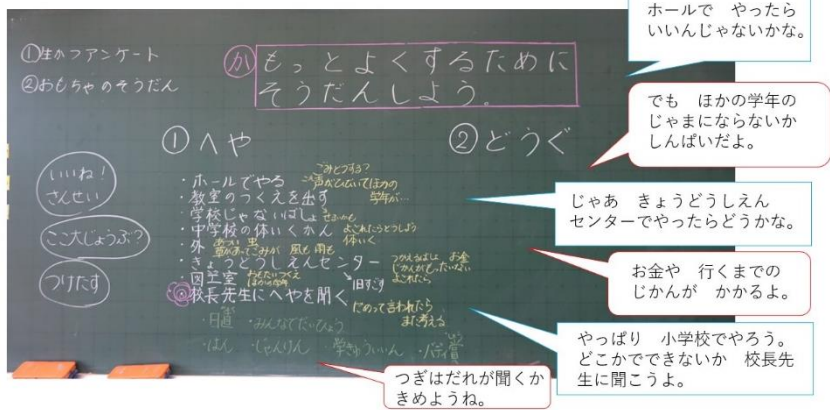 ①生かつアンケート
②おもちゃのそうだん
か もっとよくするために
そうだんしよう。
①へや
②どうぐ
いいね!
さんせい
ここ大じょうぶ?
つけたす
・ホールでやる
ごみどうする?
声がひびいてほかの
学年が…
・教室のつくえを出す
・学校じゃないばしょ
・中学校の体いくかん
よごれたらどうしよう
体いく
・外
虫
風も雨も
・きょうどうしえんセンター
お金
じかんがもったいない
よごれたら
・図工室
おもたいつくえ
ほかの学年
・校長先生にへやを聞く
だめって言われたら
また考える
・日直
・みんなでだいひょう
・はん
・じゃんけん
ホールで やったら
いいんじゃないかな。
でも ほかの学年の
じゃまにならないか
しんぱいだよ。
じゃあ きょうどうしえん
センターでやったらどうかな。
お金や 行くまでの
じかんが かかるよ。
やっぱり 小学校でやろう。
どこかでできないか 校長先
生に聞こうよ。
つぎはだれが聞くか
きめようね。